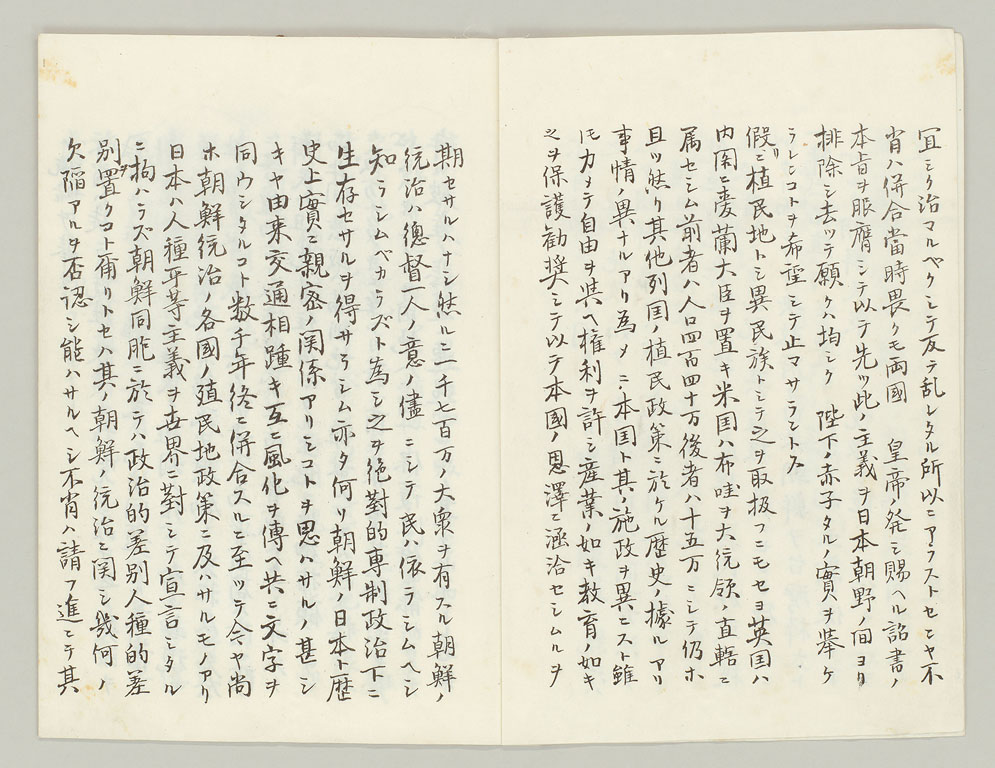 宜シク治マルベクシテ反テ乱レタル所以ニアラストセニヤ不
肖ハ併合當時畏クモ両國　皇帝ノ発シ賜ヘル詔書ノ
本旨ヲ服膺シテ以テ先ツ此ノ主義ヲ日本朝野ノ間ヨリ
排除シ去ッテ願クハ均シク　陛下ノ赤子タルノ實ヲ挙ケ
ラレンコトヲ希望シテ止マサラントス
假リニ植民地トシ異民族トシテ之ヲ取扱フニモセヨ英国ハ
内閣ニ愛蘭大臣ヲ置キ米国ハ布哇ヲ大統領ノ直轄ニ
属セシム前者ハ人口四百四十万後者ハ十五万ニシテ仍ホ
且ツ然リ其他列国ノ植民政策ニ於ケル歴史ノ據ルアリ
事情ノ異ナルアリ為メニ本国ト其ノ施政ヲ異ニスト雖
モ力メテ自由ヲ與ヘ権利ヲ許シ産業ノ如キ教育ノ如キ
之ヲ保護勧奨シテ以テ本國ノ恩澤ニ涵洽セシムルヲ
期セサルハナシ然ルニ二千七百万ノ大衆ヲ有スル朝鮮ノ
統治ハ總督一人ノ意ノ儘ニシテ民ハ依ラシムヘシ
知ラシムベカラズト為シ之ヲ絶對的専制政治下ニ
生存セサルヲ得サラシム亦タ何リ朝鮮ノ日本ト歴
史上實ニ親密ノ関係アリシコトヲ思ハサルノ甚シ
キヤ由来交通相踵キ互ニ風化ヲ傳ヘ共ニ文字ヲ
同ウシタルコト数千年終ニ併合スルニ至ッテ今ヤ尚
ホ朝鮮統治ノ各國ノ殖民地政策ニ及ハサルモノアリ
日本ハ人種平等主義ヲ世界ニ對シテ宣言シタル
ニ拘ハラズ朝鮮同胞ニ於テハ政治的差別人種的差
別ヲ置クコト爾リトセハ其ノ朝鮮ノ統治ニ関シ幾何ノ
欠陥アルヲ否認シ能ハサルヘシ不肖ハ請フ進ンテ其